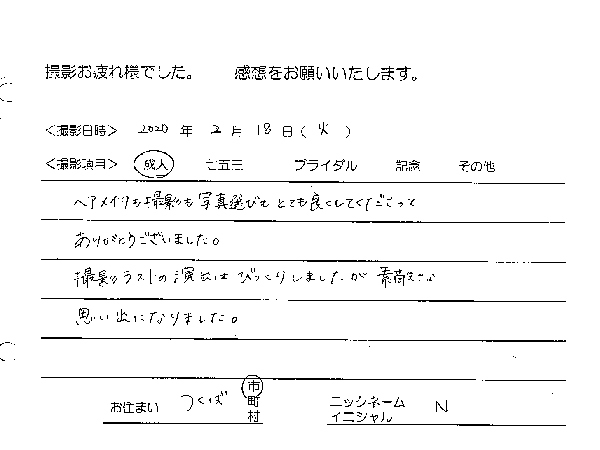 撮影お疲れ様でした。 感想をお願いいたします。
＜撮影日時＞ 2020 年 2 月 18 日 ( 火 )
＜撮影項目＞ 成人 七五三 ブライダル 記念 その他
ヘアメイクも撮影も写真選びもとても良くしてくださって
ありがとうございました。
撮影ラストの演出はびっくりしましたが 最高な
思い出になりました。
お住まい つくば 市町村
ニックネーム イニシャル N